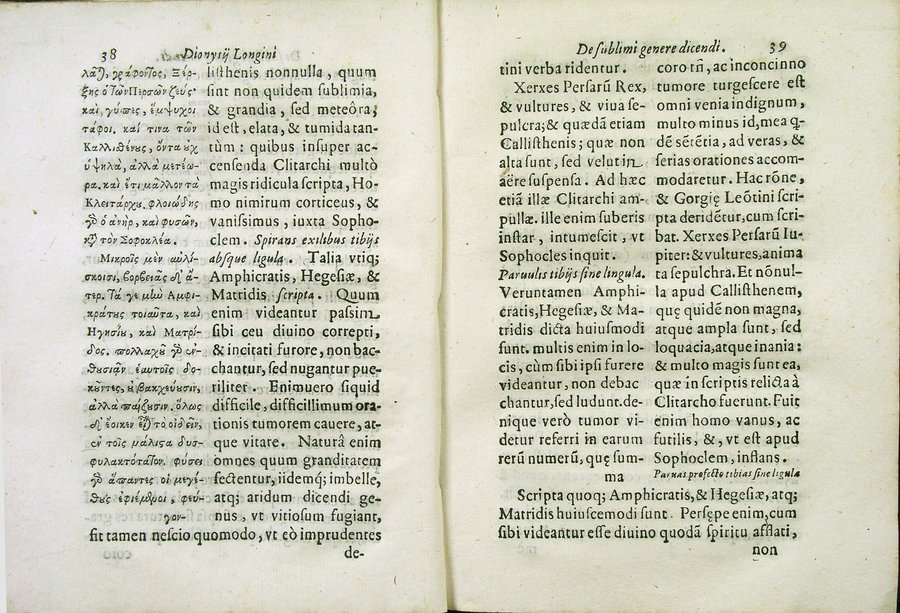 38 Dionysij Longini
γράφοντος, Ξέρ-
ξης ὁ τῶν Περσῶν ζεύς·
καὶ, γύπες, ἔμψυχοι
τάφοι. καί τινα τῶν
Καλλισθένους, ὄντα οὐχ
ὑψηλὰ, ἀλλὰ μετέω-
ρα. καὶ ἔτι μᾶλλον τὰ
Κλειτάρχου. φλοιώδης
γὰρ ὁ ἀνὴρ, καὶ φυσῶν,
κατὰ τὸν Σοφοκλέα.
Μικροῖς μὲν αὐλί-
σκοισι, φορβειᾶς δ' ἄ-
τερ. Τά γε μὴν Ἀμφι-
κράτους τοιαῦτα, καὶ
Ἡγησίου, καὶ Ματρί-
δος. πολλαχοῦ γὰρ ἐν-
θουσιᾶν ἑαυτοῖς δο-
κοῦντες, οὐ βακχεύουσιν,
ἀλλὰ παίζουσιν. ὅλως
δ' ἔοικεν εἶναι τὸ οἰδεῖν,
ἐν τοῖς μάλιστα δυσ-
φυλακτότατον. φύσει
γὰρ ἅπαντες οἱ μεγέ-
θους ἐφιέμενοι, φεύ-
γον-
listhenis nonnulla, quum
sint non quidem sublimia,
& grandia, sed meteôra;
id est, elata, & tumida tan-
tùm: quibus insuper ac-
censenda Clitarchi multò
magis ridicula scripta, Ho-
mo nimirum corticeus, &
vanissimus, iuxta Sopho-
clem. Spirans exilibus tibijs
absque ligula. Talia vtiq;
Amphicratis, Hegesiæ, &
Matridis scripta. Quum
enim videantur passim
sibi ceu diuino correpti,
& incitati furore, non bac-
chantur, sed nugantur pue-
riliter. Enimuero siquid
difficile, difficillimum ora-
tionis tumorem cauere, at-
que vitare. Naturâ enim
omnes quum granditatem
sectentur, iidemq; imbelle,
atq; aridum dicendi ge-
nus, vt vitiosum fugiant,
fit tamen nescio quomodo, vt eò imprudentes
de-
De sublimi genere dicendi. 39
tini verba ridentur.
Xerxes Persarū Rex,
& vultures, & viua se-
pulcra; & quædā etiam
Callisthenis; quæ non
alta sunt, sed velut in
aëre suspensa. Ad hæc
etiā illæ Clitarchi am-
pullæ. ille enim suberis
instar, intumescit, vt
Sophocles inquit.
Paruulis tibijs sine lingula.
Veruntamen Amphi-
cratis, Hegesiæ, & Ma-
tridis dicta huiusmodi
sunt. multis enim in lo-
cis, cùm sibi ipsi furere
videantur, non debac
chantur, sed ludunt. de-
nique verò tumor vi-
detur referri in earum
rerū numerū, quę sum-
ma
coro tñ, ac inconcinno
tumore turgescere est
omni venia indignum,
multo minus id, mea q-
dē sētētia, ad veras, &
serias orationes accom-
modaretur. Hac rōne,
& Gorgię Leōtini scri-
pta deridētur, cum scri-
bat. Xerxes Persarū Iu-
piter: & vultures, anima
ta sepulchra. Et nōnul-
la apud Callisthenem,
quę quidē non magna,
atque ampla sunt, sed
loquacia, atque inania:
& multo magis sunt ea,
quæ in scriptis relicta à
Clitarcho fuerunt. Fuit
enim homo vanus, ac
futilis, &, vt est apud
Sophoclem, instans.
Paruas profecto tibias sine ligula
Scripta quoq; Amphicratis, & Hegesiæ, atq;
Matridis huiuscemodi sunt. Persępe enim, cum
sibi videantur esse diuino quodā spiritu afflati,
non